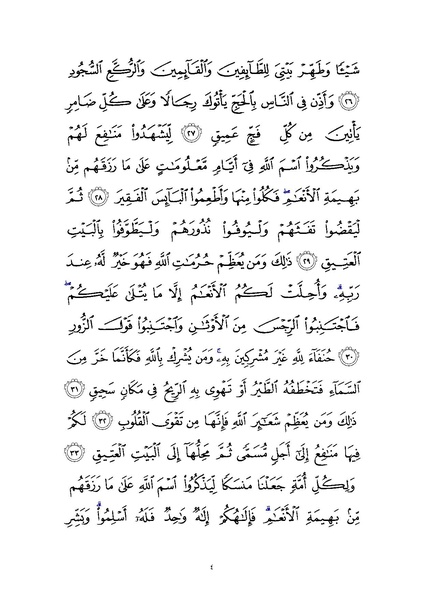 شَيْـًٔا وَطَهِّرْ بَيْتِىَ لِلطَّآئِفِينَ وَٱلْقَآئِمِينَ وَٱلرُّكَّعِ ٱلسُّجُودِ
﴿٢٦﴾ وَأَذِّن فِى ٱلنَّاسِ بِٱلْحَجِّ يَأْتُوكَ رِجَالًا وَعَلَىٰ كُلِّ ضَامِرٍ
يَأْتِينَ مِن كُلِّ فَجٍّ عَمِيقٍ ﴿٢٧﴾ لِّيَشْهَدُوا۟ مَنَـٰفِعَ لَهُمْ
وَيَذْكُرُوا۟ ٱسْمَ ٱللَّهِ فِىٓ أَيَّامٍ مَّعْلُومَـٰتٍ عَلَىٰ مَا رَزَقَهُم مِّنۢ
بَهِيمَةِ ٱلْأَنْعَـٰمِ ۖ فَكُلُوا۟ مِنْهَا وَأَطْعِمُوا۟ ٱلْبَآئِسَ ٱلْفَقِيرَ ﴿٢٨﴾ ثُمَّ
لْيَقْضُوا۟ تَفَثَهُمْ وَلْيُوفُوا۟ نُذُورَهُمْ وَلْيَطَّوَّفُوا۟ بِٱلْبَيْتِ
ٱلْعَتِيقِ ﴿٢٩﴾ ذَٰلِكَ وَمَن يُعَظِّمْ حُرُمَـٰتِ ٱللَّهِ فَهُوَ خَيْرٌ لَّهُۥ عِندَ
رَبِّهِۦ ۗ وَأُحِلَّتْ لَكُمُ ٱلْأَنْعَـٰمُ إِلَّا مَا يُتْلَىٰ عَلَيْكُمْ ۖ
فَٱجْتَنِبُوا۟ ٱلرِّجْسَ مِنَ ٱلْأَوْثَـٰنِ وَٱجْتَنِبُوا۟ قَوْلَ ٱلزُّورِ
﴿٣٠﴾ حُنَفَآءَ لِلَّهِ غَيْرَ مُشْرِكِينَ بِهِۦ ۚ وَمَن يُشْرِكْ بِٱللَّهِ فَكَأَنَّمَا خَرَّ مِنَ
ٱلسَّمَآءِ فَتَخْطَفُهُ ٱلطَّيْرُ أَوْ تَهْوِى بِهِ ٱلرِّيحُ فِى مَكَانٍ سَحِيقٍ ﴿٣١﴾
ذَٰلِكَ وَمَن يُعَظِّمْ شَعَـٰٓئِرَ ٱللَّهِ فَإِنَّهَا مِن تَقْوَى ٱلْقُلُوبِ ﴿٣٢﴾ لَكُمْ
فِيهَا مَنَـٰفِعُ إِلَىٰٓ أَجَلٍ مُّسَمًّى ثُمَّ مَحِلُّهَآ إِلَى ٱلْبَيْتِ ٱلْعَتِيقِ ﴿٣٣﴾
وَلِكُلِّ أُمَّةٍ جَعَلْنَا مَنسَكًا لِّيَذْكُرُوا۟ ٱسْمَ ٱللَّهِ عَلَىٰ مَا رَزَقَهُم
مِّنۢ بَهِيمَةِ ٱلْأَنْعَـٰمِ ۗ فَإِلَـٰهُكُمْ إِلَـٰهٌ وَٰحِدٌ فَلَهُۥٓ أَسْلِمُوا۟ ۗ وَبَشِّرِ
٤